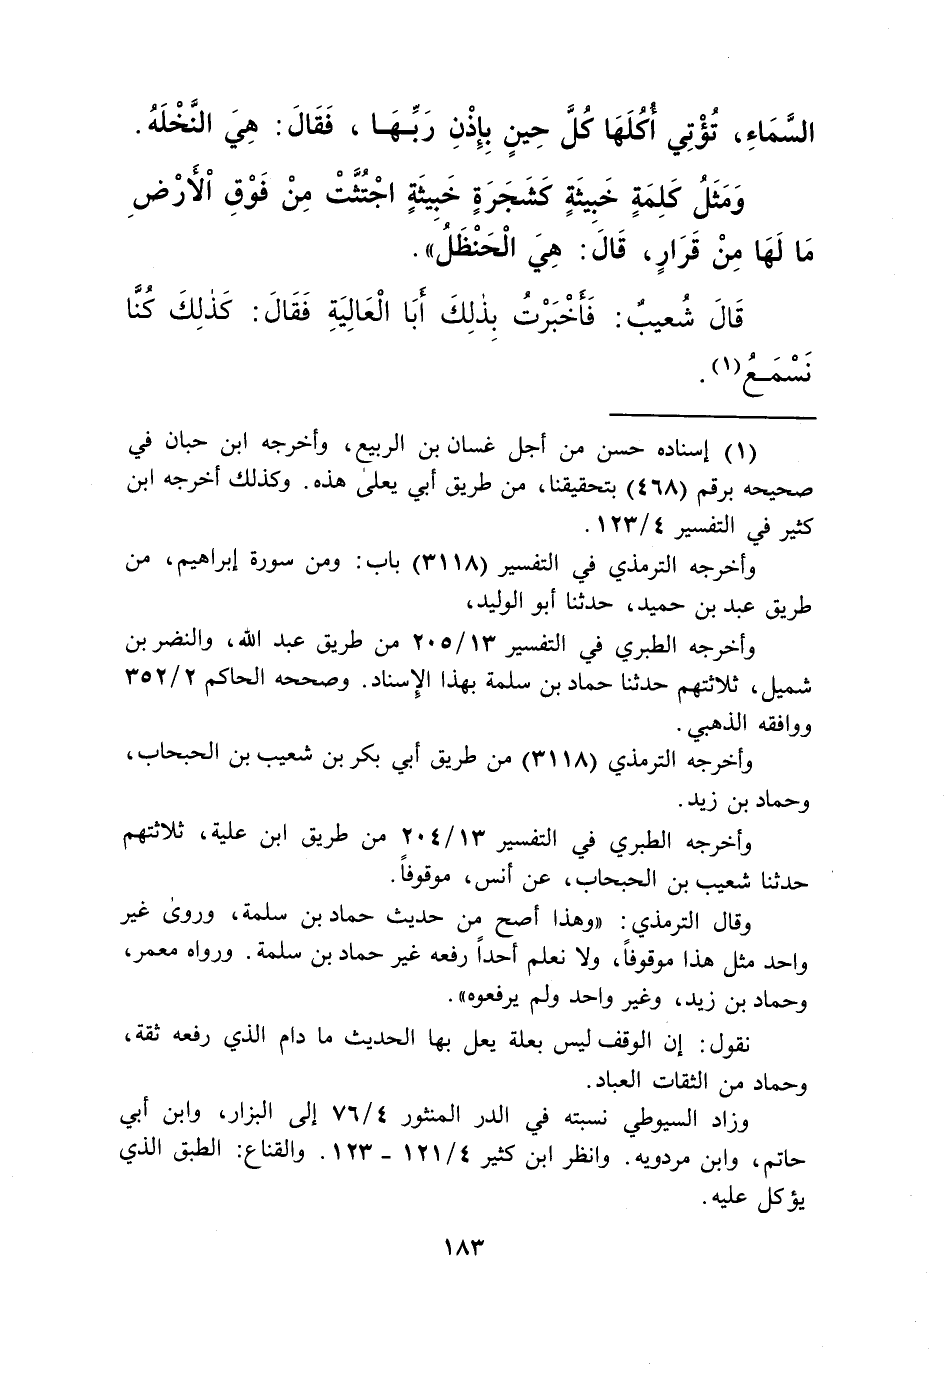 السَّمَاءِ، تُؤْتِي أُكُلَهَا كُلَّ حِينٍ بِإِذْنِ رَبِّهَا ، فَقَالَ: هِيَ النَّخْلَةُ.
وَمَثَلُ كَلِمَةٍ خَبِيثَةٍ كَشَجَرَةٍ خَبِيثَةٍ اجْتُثَّتْ مِنْ فَوْقِ الْأَرْضِ
مَا لَهَا مِنْ قَرَارٍ، قَالَ: هِيَ الْحَنْظَلُ».
قَالَ شُعيبٌ: فَأَخْبَرْتُ بِذٰلِكَ أَبَا الْعَالِيَةِ فَقَالَ: كَذٰلِكَ كُنَّا
نَسْمَعُ(١).
(١) إسناده حسن من أجل غسان بن الربيع، وأخرجه ابن حبان في
صحيحه برقم (٤٦٨) بتحقيقنا، من طريق أبي يعلىٰ هذه. وكذلك أخرجه ابن
كثير في التفسير ١٢٣/٤.
وأخرجه الترمذي في التفسير (٣١١٨) باب: ومن سورة إبراهيم، من
طريق عبد بن حميد، حدثنا أبو الوليد،
وأخرجه الطبري في التفسير ٢٠٥/١٣ من طريق عبد الله، والنضر بن
شميل، ثلاثتهم حدثنا حماد بن سلمة بهذا الإسناد. وصححه الحاكم ٣٥٢/٢
ووافقه الذهبي.
وأخرجه الترمذي (٣١١٨) من طريق أبي بكر بن شعيب بن الحبحاب،
وحماد بن زيد.
وأخرجه الطبري في التفسير ٢٠٤/١٣ من طريق ابن علية، ثلاثتهم
حدثنا شعيب بن الحبحاب، عن أنس، موقوفاً.
وقال الترمذي: «وهذا أصح من حديث حماد بن سلمة، وروىٰ غير
واحد مثل هذا موقوفاً، ولا نعلم أحداً رفعه غير حماد بن سلمة. ورواه معمر،
وحماد بن زيد، وغير واحد ولم يرفعوه».
نقول: إن الوقف ليس بعلة يعل بها الحديث ما دام الذي رفعه ثقة،
وحماد من الثقات العباد.
وزاد السيوطي نسبته في الدر المنثور ٧٦/٤ إلى البزار، وابن أبي
حاتم، وابن مردويه. وانظر ابن كثير ١٢١/٤ - ١٢٣. والقناع: الطبق الذي
يؤكل عليه.
١٨٣